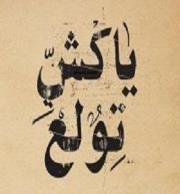 ياكشّ
تِولَعْ